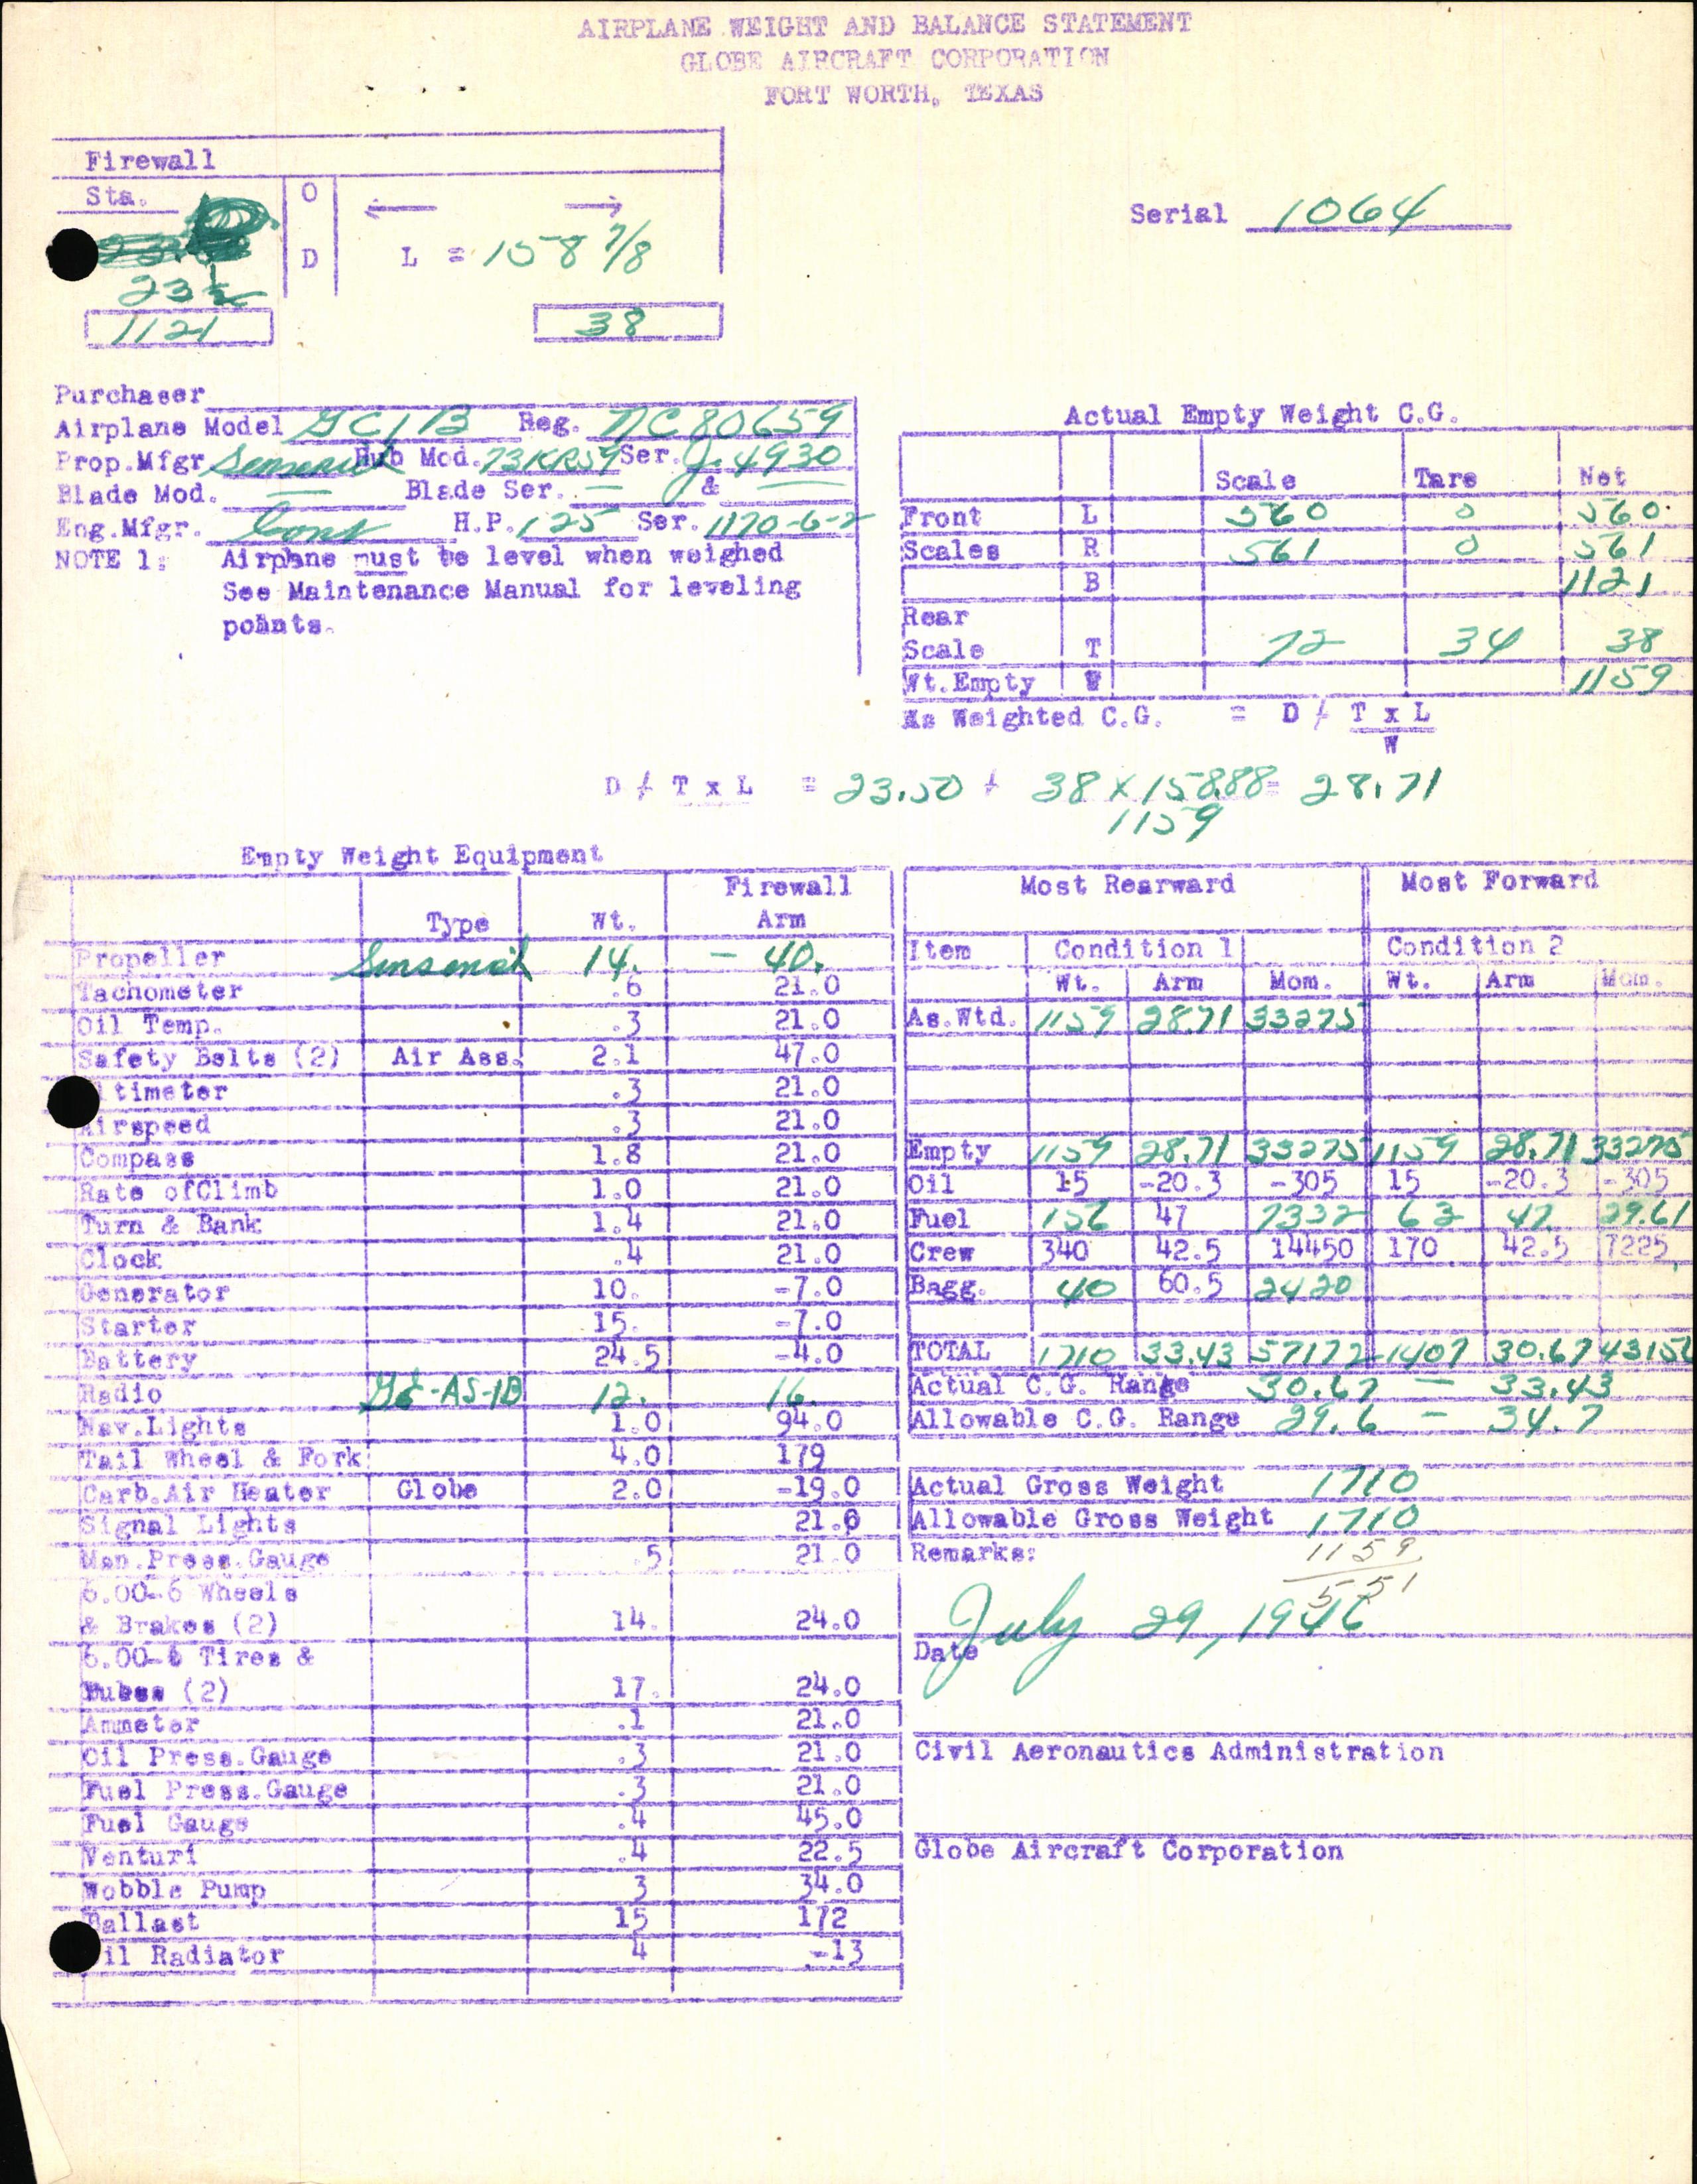 AIRPLANE WEIGHT AND BALANCE STATEMENT
GLOBE AIRCRAFT CORPORATION
FORT WORTH, TEXAS
Firewall
Sta. O
D L = 158 7/8
23 1/2
1121 38
Serial 1064
Purchaser
Airplane Model GC1B Reg. NC80659
Prop.Mfgr Sensenich Hub Mod. 73KR59 Ser. J. 4930
Blade Mod. — Blade Ser. — & —
Eng.Mfgr. Cont H.P. 125 Ser. 1170-6-2
NOTE 1: Airplane must be level when weighed
See Maintenance Manual for leveling
points.
Actual Empty Weight C.G.
Scale Tare Net
Front L 560 0 560
Scales R 561 0 561
B 1121
Rear
Scale T 72 34 38
Wt.Empty W 1159
As Weighted C.G. = D / T x L
W
D / T x L = 23.50 + 38 x 158.88 = 28.71
1159
Empty Weight Equipment
Firewall
Type Wt. Arm
Propeller Sensenich 14. - 40.
Tachometer .6 21.0
Oil Temp. .3 21.0
Safety Belts (2) Air Ass. 2.1 47.0
ltimeter .3 21.0
Airspeed .3 21.0
Compass 1.8 21.0
Rate ofClimb 1.0 21.0
Turn & Bank 1.4 21.0
Clock .4 21.0
Generator 10. -7.0
Starter 15. -7.0
Battery 24.5 -4.0
Radio GE-AS-1B 12. 16.
Nav.Lights 1.0 94.0
Tail Wheel & Fork 4.0 179
Carb.Air Heater Globe 2.0 -19.0
Signal Lights 21.0
Man.Press.Gauge .5 21.0
6.00-6 Wheels
& Brakes (2) 14. 24.0
6.00-6 Tires &
Tubes (2) 17. 24.0
Ammeter .1 21.0
Oil Press.Gauge .3 21.0
Fuel Press.Gauge .3 21.0
Fuel Gauge .4 45.0
Venturi .4 22.5
Wobble Pump 3 34.0
Ballast 15 172
il Radiator 4 -13
Most Rearward Most Forward
Item Condition 1 Condition 2
Wt. Arm Mom. Wt. Arm Mom.
As.Wtd. 1159 28.71 33275
Empty 1159 28.71 33275 1159 28.71 33275
Oil 15 -20.3 -305 15 -20.3 -305
Fuel 156 47 7332 63 47 29.61
Crew 340 42.5 14450 170 42.5 7225
Bagg. 40 60.5 2420
TOTAL 1710 33.43 57172 1407 30.67 43156
Actual C.G. Range 30.67 — 33.43
Allowable C.G. Range 29.6 — 34.7
Actual Gross Weight 1710
Allowable Gross Weight 1710
Remarks: 1159
551
July 29, 1946
Date
Civil Aeronautics Administration
Globe Aircraft Corporation